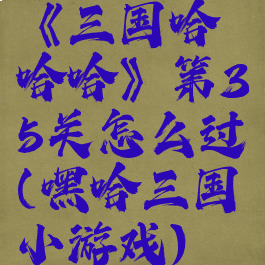 《三国哈
哈哈》第3
5关怎么过
(嘿哈三国
小游戏)